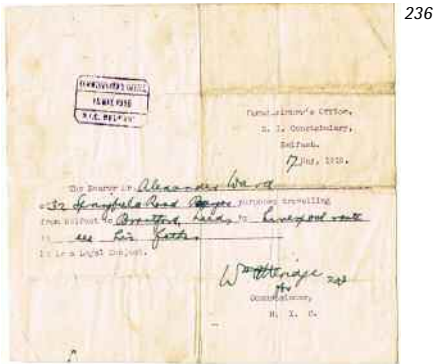 236
COMMISSIONER'S OFFICE
R.I.C. BELFAST
Commissioner's Office,
R. I. Constabulary,
Belfast.
17 May, 1916.
The Bearer Mr. Alexander Ward
of 32 Springfield Road purposes travelling
from Belfast to Bradford, Leeds, to Liverpool route
to see his father
He is a Loyal Subject.
for
Commissioner,
R. I. C.